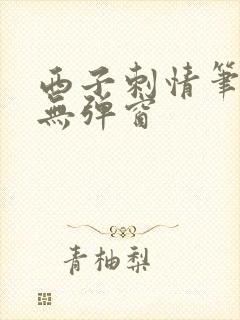 西子刺情筆
無彈窗
青柚梨